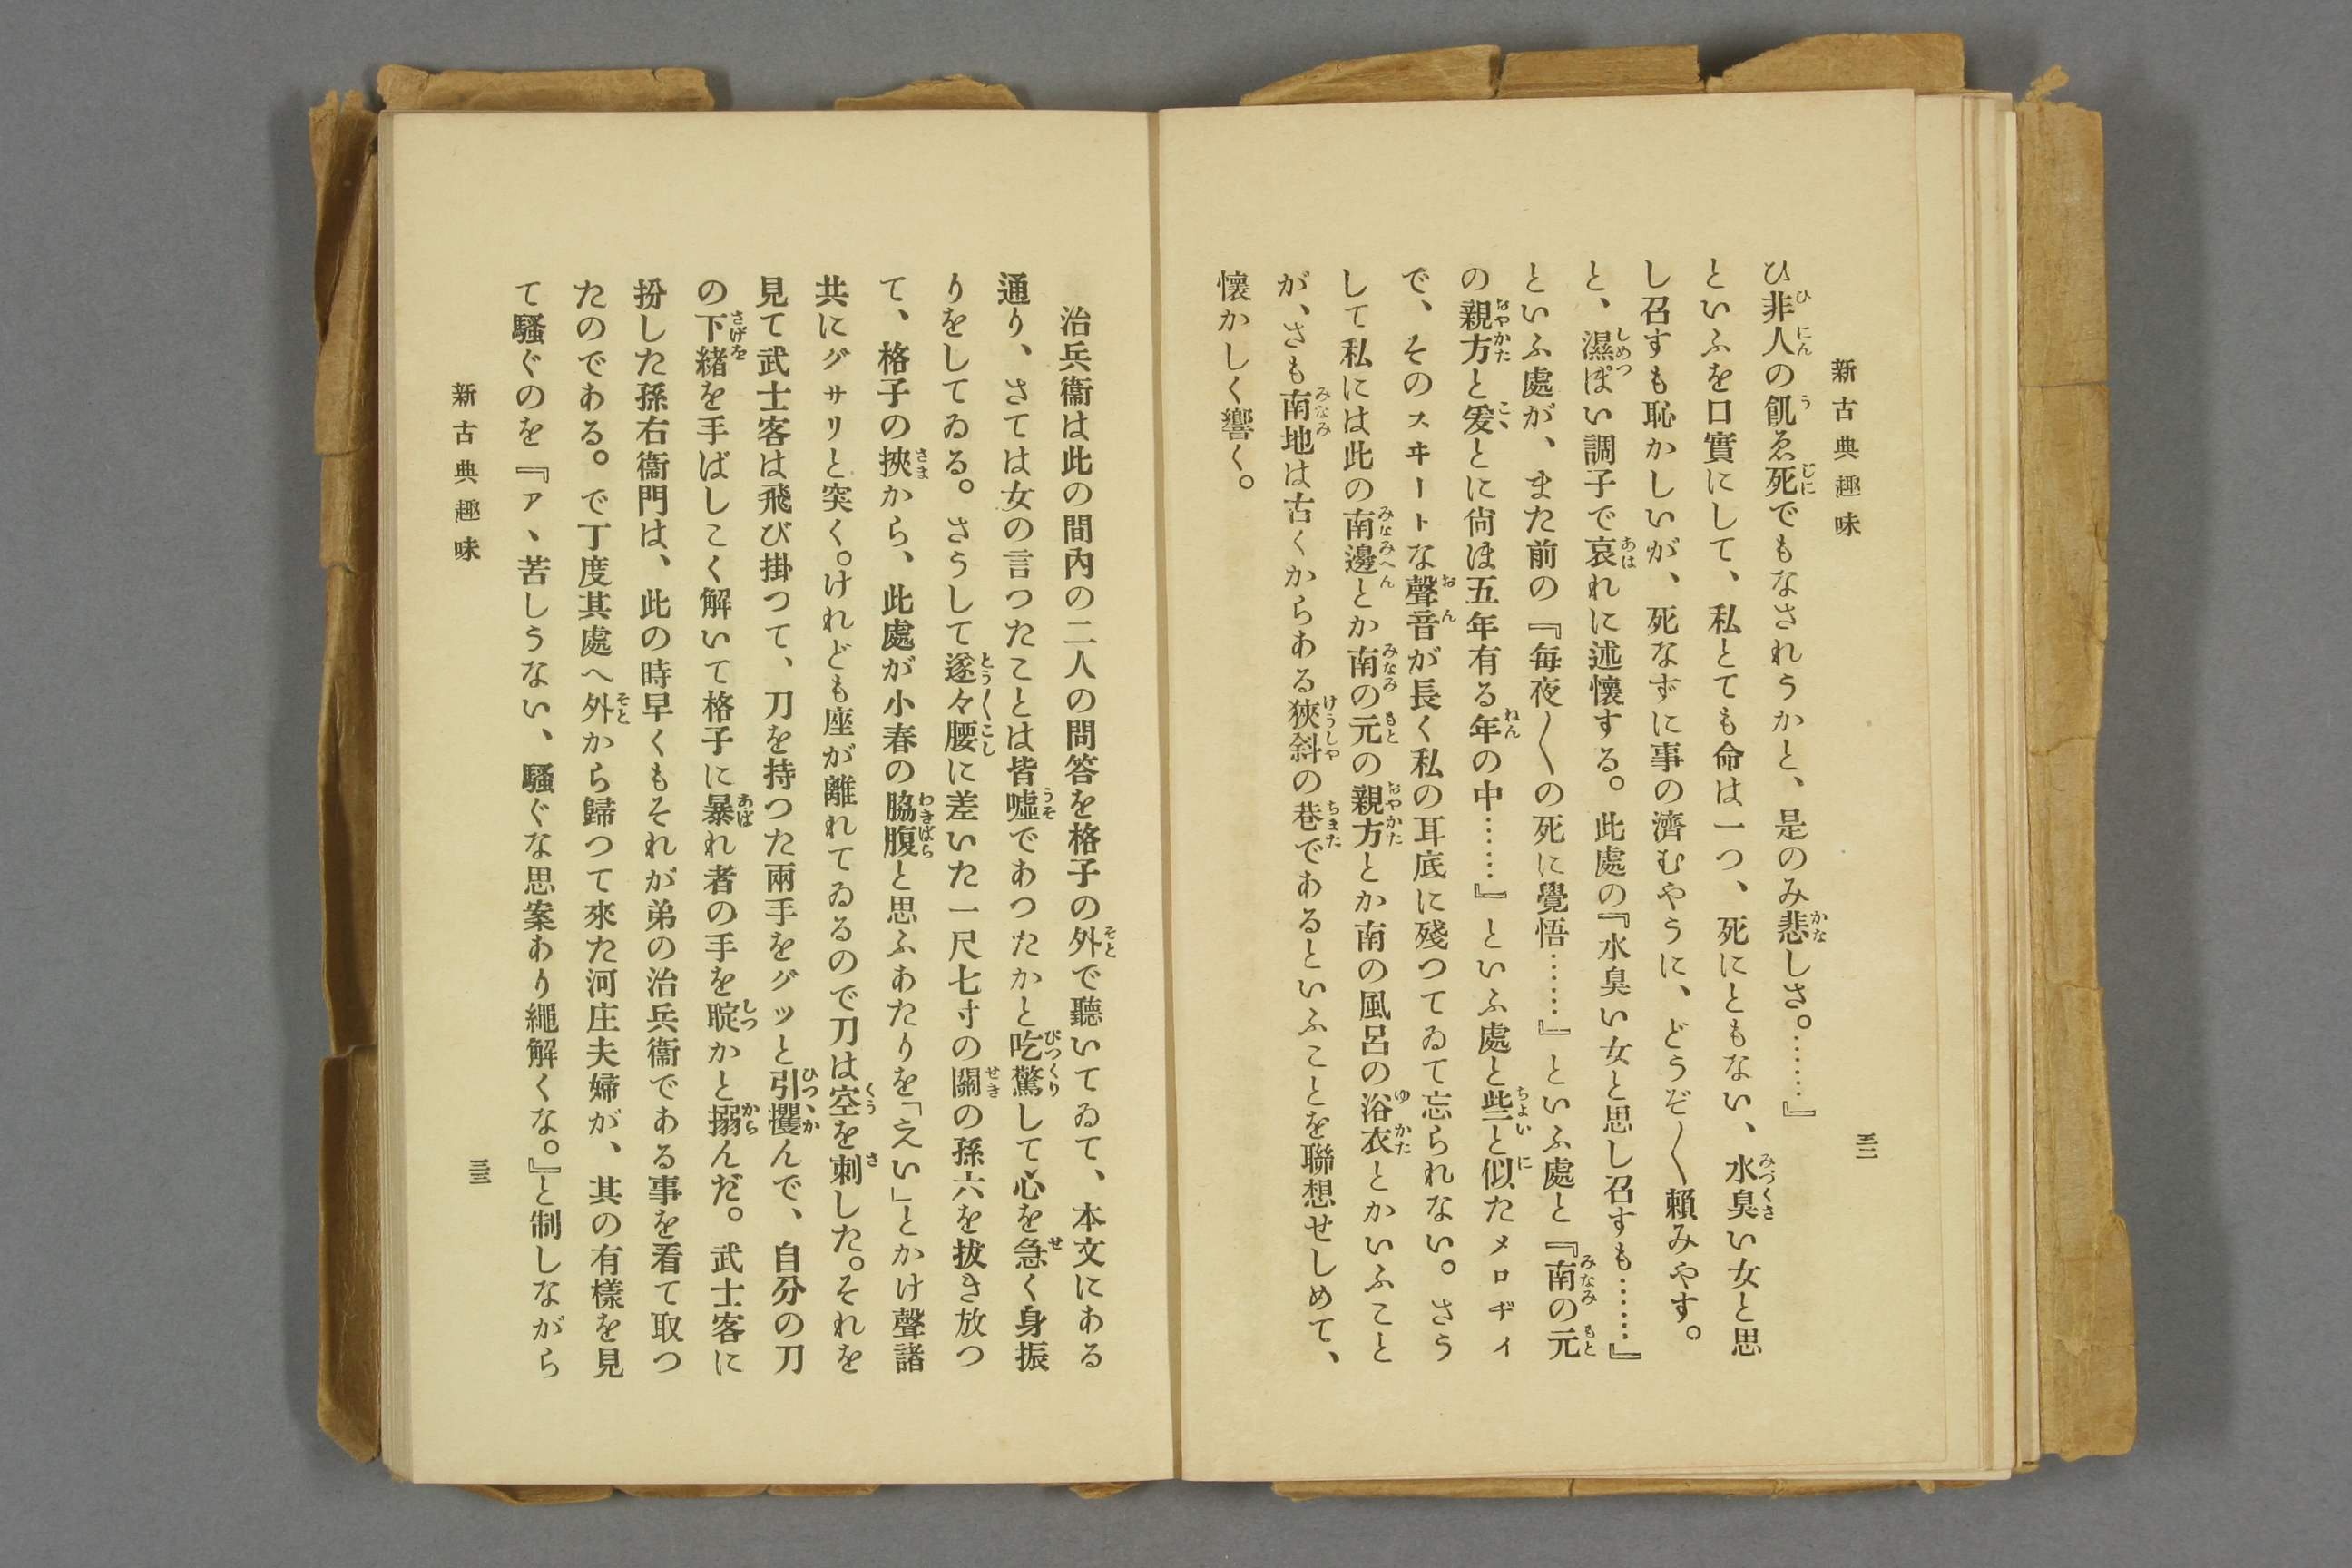 新古典趣味
三二
ひ非人の飢ゑ死でもなされうかと、是のみ悲しさ。……』
といふを口實にして、私とても命は一つ、死にともない、水臭い女と思
し召すも恥かしいが、死なずに事の濟むやうに、どうぞ〱賴みやす。
と、濕ぽい調子で哀れに述懷する。此處の『水臭い女と思し召すも……』
といふ處が、また前の『每夜〱の死に覺悟……』といふ處と『南の元
の親方と爰とに尙ほ五年有る年の中……』といふ處と些と似たメロヂィ
で、そのスヰートな聲音が長く私の耳底に殘つてゐて忘られない。さう
して私には此の南邊とか南の元の親方とか南の風呂の浴衣とかいふこと
が、さも南地は古くからある狹斜の巷であるといふことを聯想せしめて、
懷かしく響く。
治兵衞は此の間內の二人の問答を格子の外で聽いてゐて、本文にある
通り、さては女の言つたことは皆噓であつたかと吃驚して心を急く身振
りをしてゐる。さうして遂々腰に差いた一尺七寸の關の孫六を拔き放つ
て、格子の挾から、此處が小春の脇腹と思ふあたりを「えい」とかけ聲諸
共にグサリと突く。けれども座が離れてゐるので刀は空を刺した。それを
見て武士客は飛び掛つて、刀を持つた兩手をグッと引攫んで、自分の刀
の下緖を手ばしこく解いて格子に暴れ者の手を聢かと搦んだ。武士客に
扮した孫右衞門は、此の時早くもそれが弟の治兵衞である事を看て取つ
たのである。で丁度其處へ外から歸つて來た河庄夫婦が、其の有樣を見
て騷ぐのを『ァ、苦しうない、騷ぐな思案あり繩解くな。』と制しながら
新古典趣味
三三